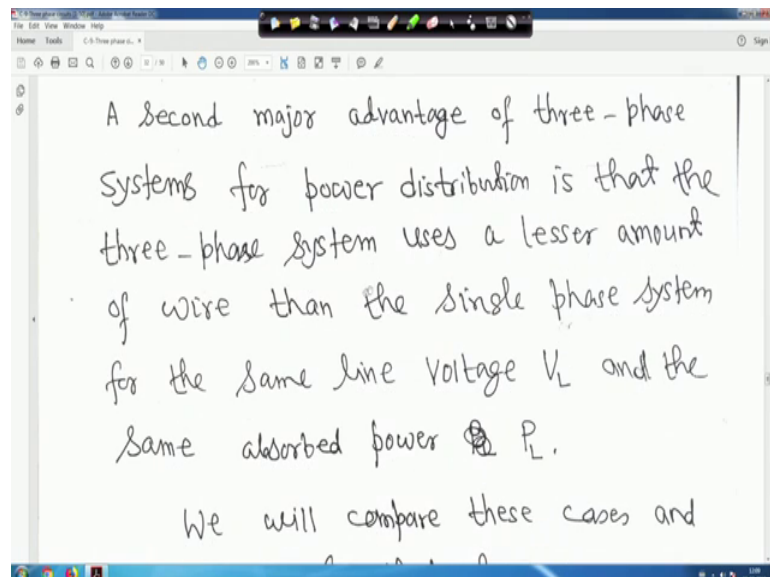 File Edit View Window Help
Home Tools
Sign
A second major advantage of three-phase
systems for power distribution is that the
three-phase system uses a lesser amount
of wire than the single phase system
for the same line voltage VL and the
same absorbed power PL.
We will compare these cases and